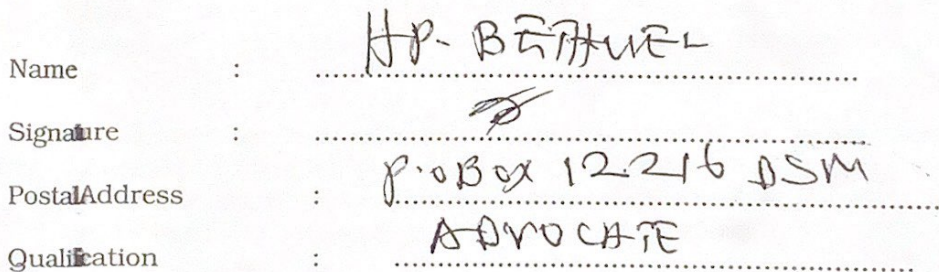 Name : HP. BETHUEL
Signature :
Postal Address : P.o Box 12216 DSM
Qualification : ADVOCATE